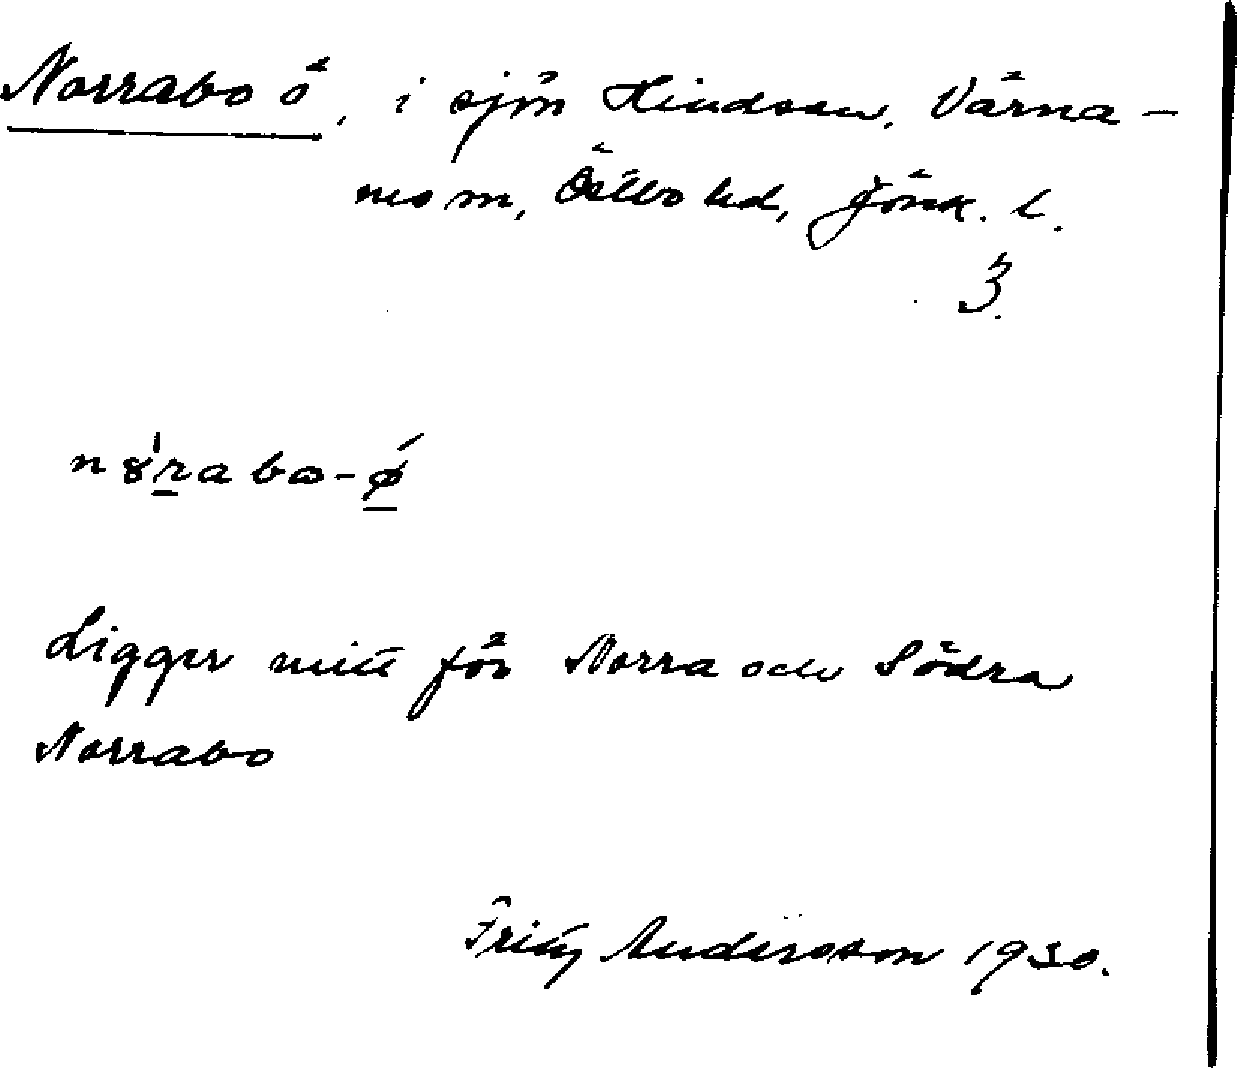 Norrabo ö, i sjön Hindsen, Värna-
mo sn, Östbo hd, Jönk. l.
3.
Ligger mitt för Norra och Södra
Norrabo
Fritz Andersson 1930.